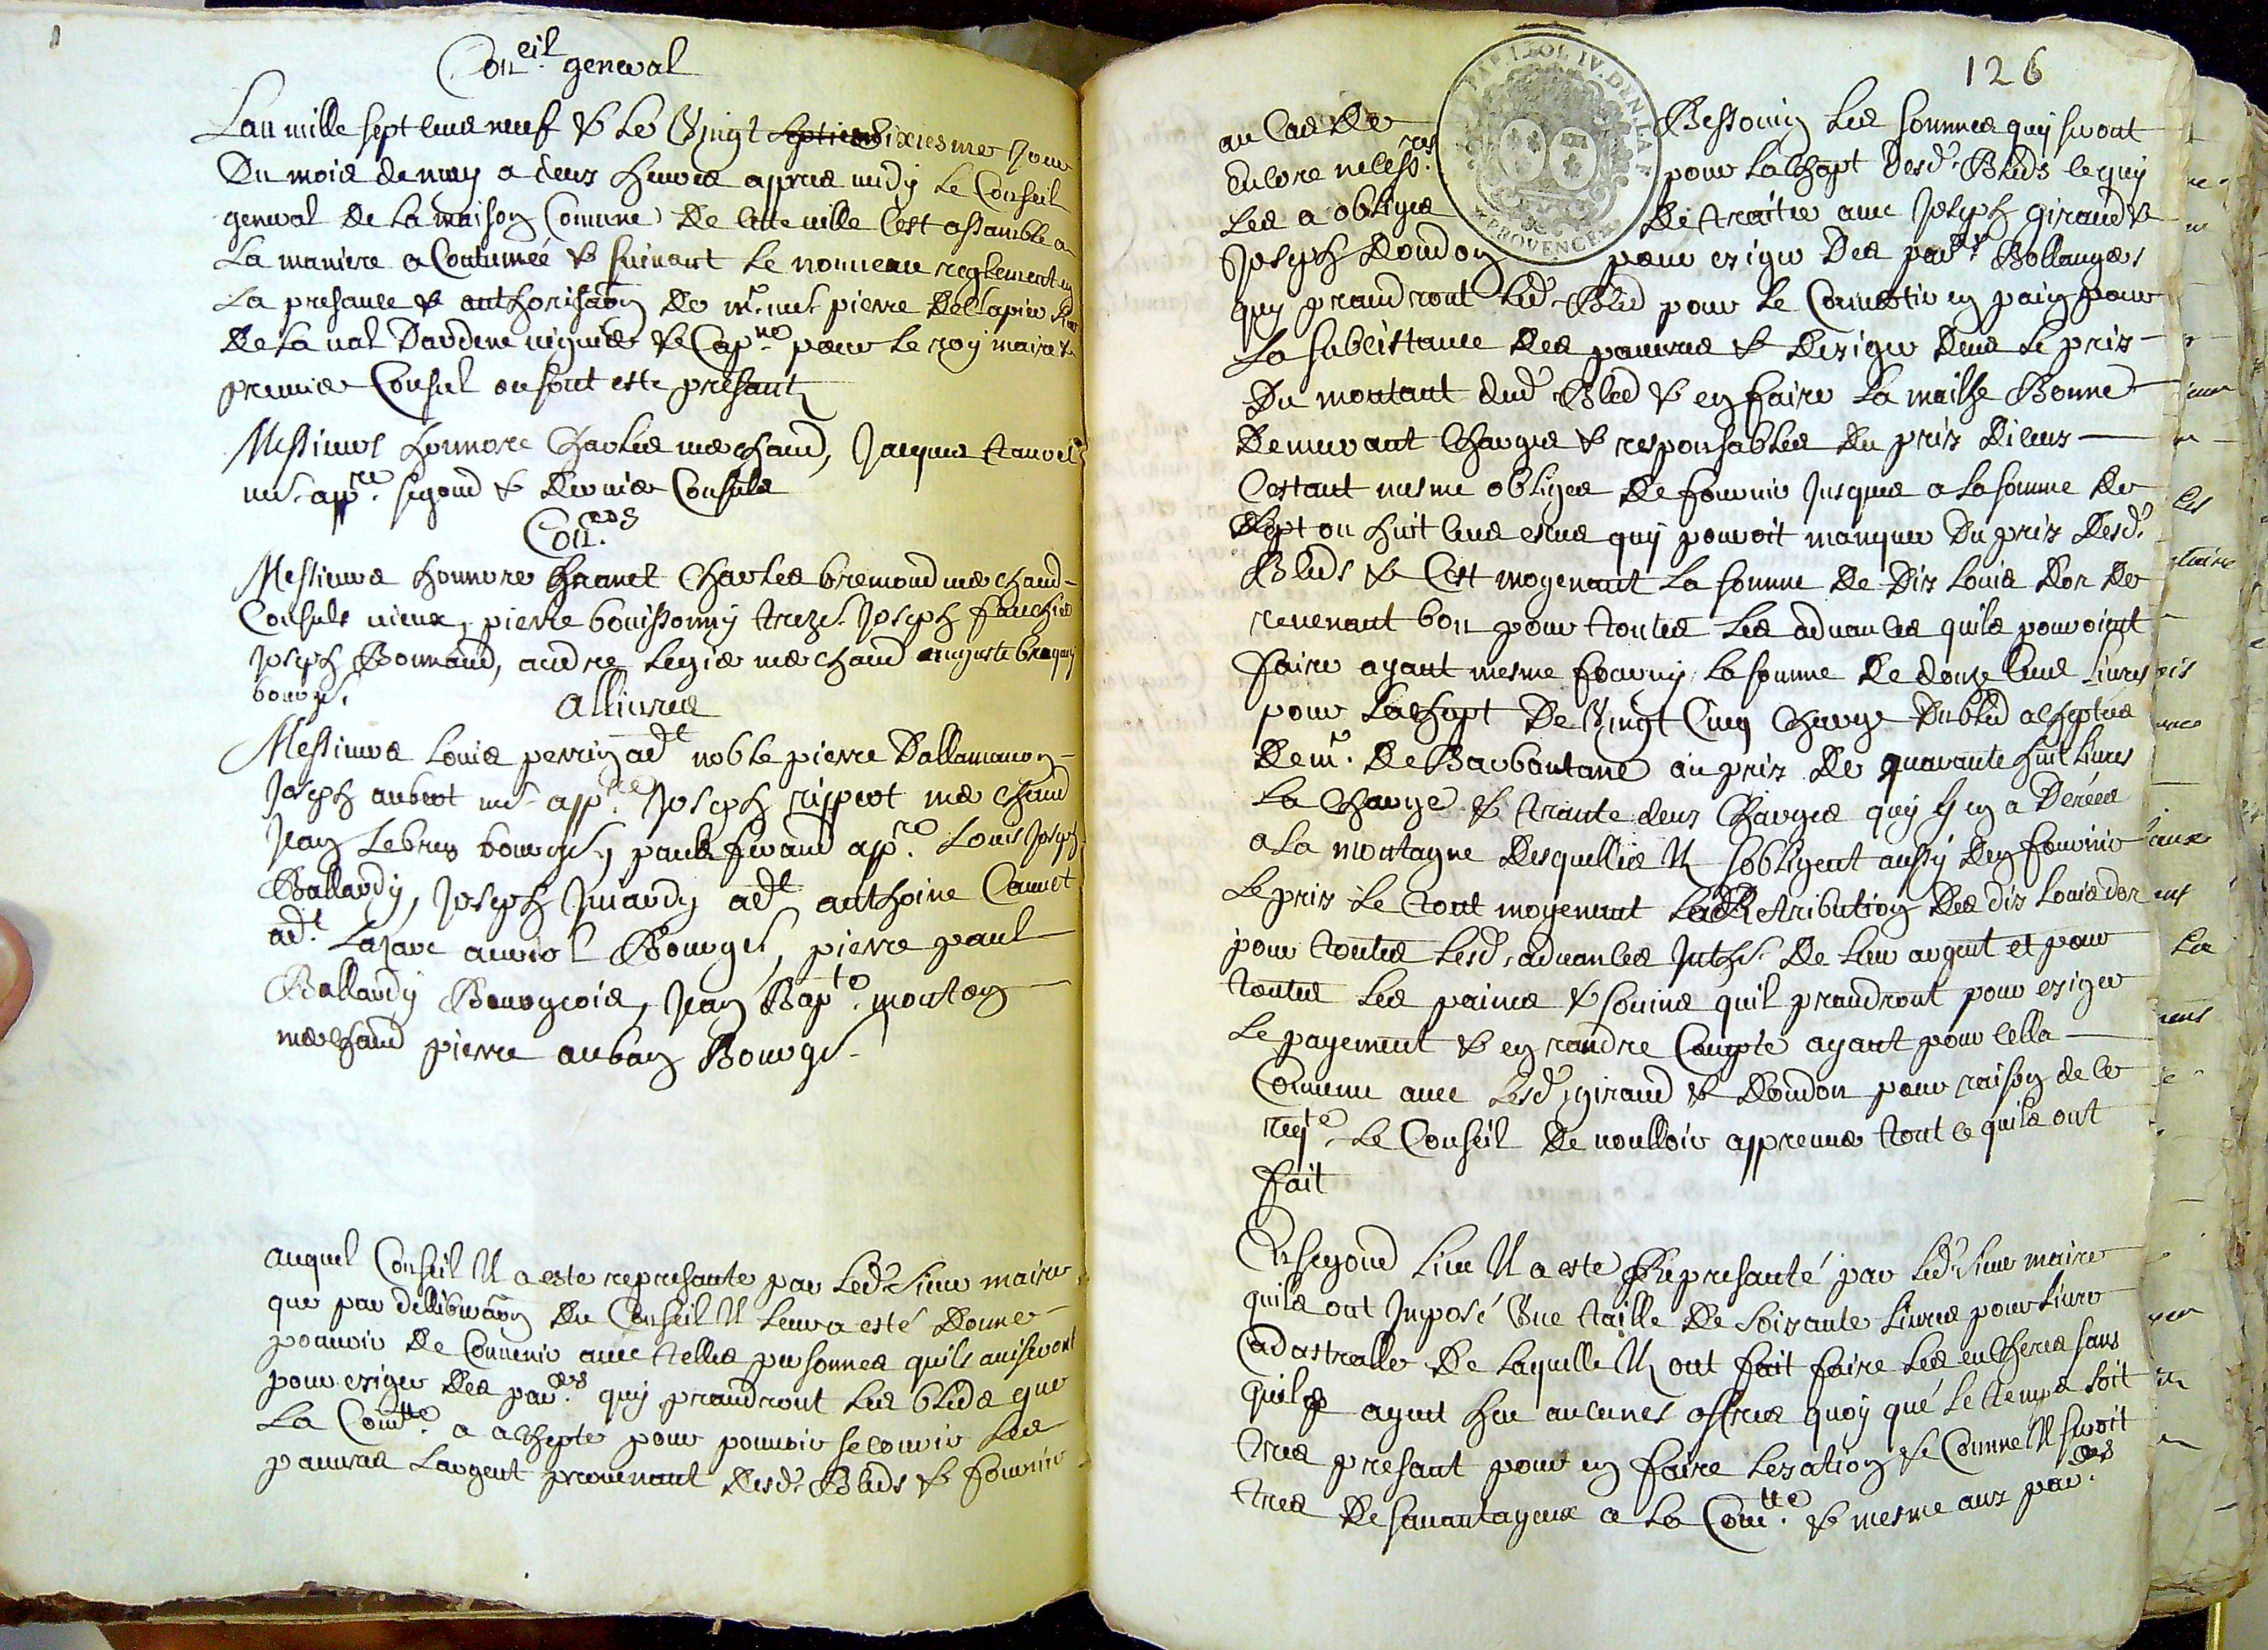 Con.eil general
Lan mille sept cens neuf & le Vingt septiem sixiesme Jour
Du mois de may a deux heures appres midy le Conseil
general de la maison Comune de cette ville cest assamble a
la maniere a Coutumée & suivant le nouveau reglement en
la presance & authorisaōn de mr. me. pierre
de la val Dardene viguier & Cap.ne pour le roy maire &
premier Consul ou sont este presant
Messieurs honnore Charles marchand, Jacques tauvel
me. app.re segond & dernier Consuls
Con.ers
Messieurs honnore hranet Charles bremond marchand
Consuls vieux, pierre bouissonny trezr. Joseph fauchier
Joseph Bonnaud, andre legier marchand auguste
bourgs.
alliures
Messieurs Louis perrin adt noble pierre Dallamanon
Joseph aubert me. app.re Joseph rippert marchand
Jean lebrun bourgs, paul feraud app.re Louis Joseph
Ballardy, Joseph Juiardy adt anthoine Cannet
adt. Lazare auriol Bourgs, pierre paul
Ballardy Bourgeois, Jean Bap.te moutton
marchand pierre auban Bourgs.
auquel Conseil Il a este represante par led. sieur maire
que par delliberaōn du Conseil Il leur a esté donne
pouvoir de Convenir avec telles personnes quils aviseront
pour exiger des par.ers quy prandront les bleds que
la Com.tte a achepte pour pouvoir secourir les
pauvres largent provenant desd. Bleds & fournir
126
PAP. I SOL IV. DEN. LA F.
PROVENCE
au cas de Bessoin les sommes quy seront
encore necess.res pour lachapt desd. Bleds ce quy
les a obliges de traiter avec Joseph giraud &
Joseph Doudon pour exiger des par.ers Bollangers
quy prandront led. Bled pour le Convertir en pain pour
la subcistance des pauvres & dexiger deux le prix
du montant dud. Bled & en faire la mailhe Bonne
demeurant charges & responsables du prix diceux
cestant mesme obliges de fournir Jusques a la somme de
sept ou huit cens escus quy pouroit manquer du prix desd.
Bleds & cest moyenant la somme de dix louis dor de
revenant bon pour toutes les advances quils pouroint
faire ayant mesme fourny la somme de douze cens livres
pour lachapt de Vingt Cinq charge du bled acheptes
de mr. de Barbantane au prix de quarante huit livres
la charge & trante deux charges quy y en a derées
a la montagne desquelles Il sobligent aussy den fournir
le prix le tout moyenant lad. Retribution des dix louis dor
pour toutes lesd. advances Inths. de leur argent et pour
toutes les paines & soins quil prandront pour exiger
le payement & en randre Compte ayant pour cella
Convenu avec lesd. giraud & Doudon pour raison de ce
reqt.e le Conseil de voulloir approuver tout ce quils ont
fait
En segond lieu Il a este Represanté par led. sieur maire
quils ont Imposé Une taille de soixante livres pour livre
Cadastralle de laquelle Il ont fait faire les encheres sans
quils ayent heu aucunes offres quoy qué le temps soit
tres presant pour en faire lexation & Comme Il seroit
tres desavantageux a la Com.tte & mesme aux par.ers